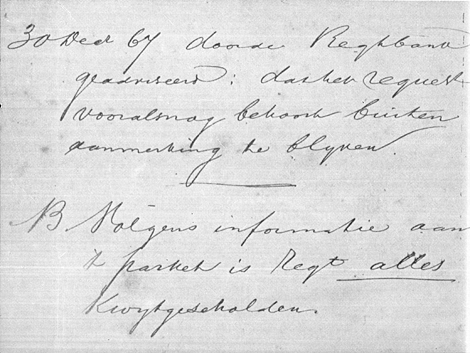 30 Dec 67 door de Regtbank
geadviseerd: dat het request
vooralsnog behoort buiten
aanmerking te blyven.
NB Volgens informatie aan
't parket is Regt alles
Kwytgescholden.